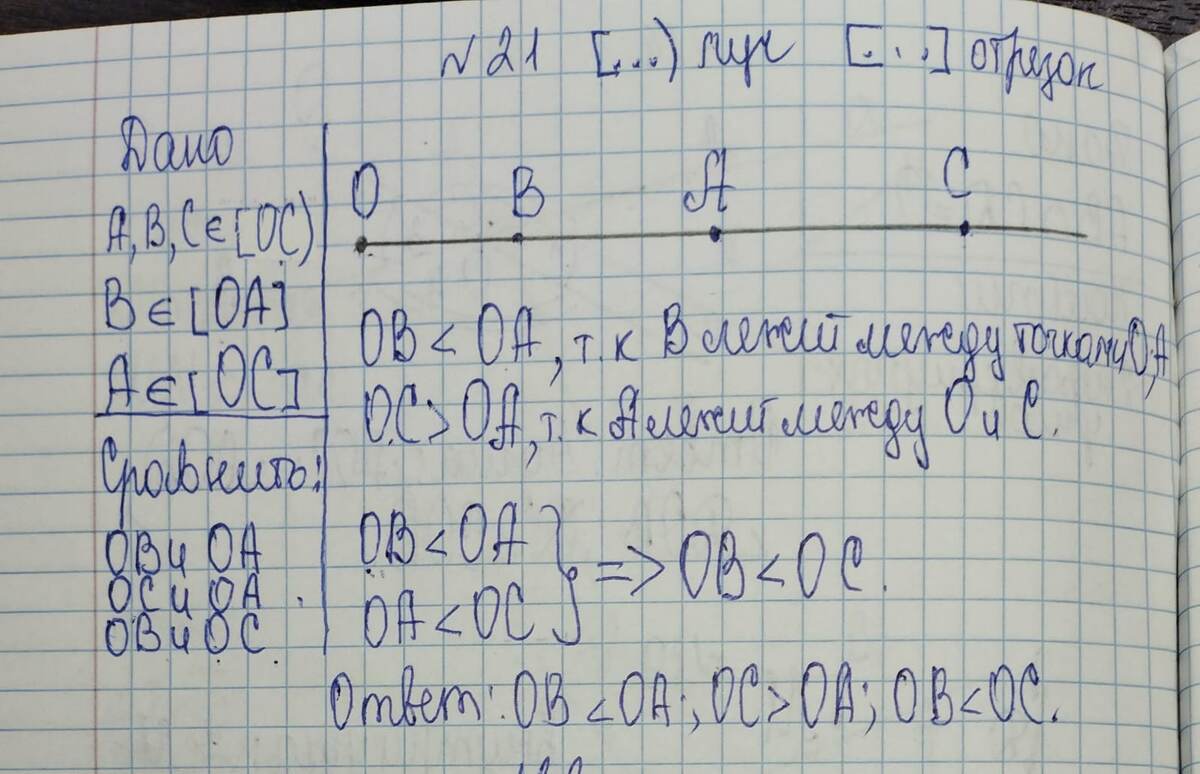 №21 [...) луч [...] отрезок
Дано
A, B, C ∈ [OC)
B ∈ [OA]
A ∈ [OC]
Сравнить:
OB и OA
OC и OA.
OB и OC.
O B A C
OB < OA, т.к B лежит между точками O, A
OC > OA, т.к A лежит между O и C.
OB < OA
OA < OC } => OB < OC.
Ответ: OB < OA; OC > OA; OB < OC.